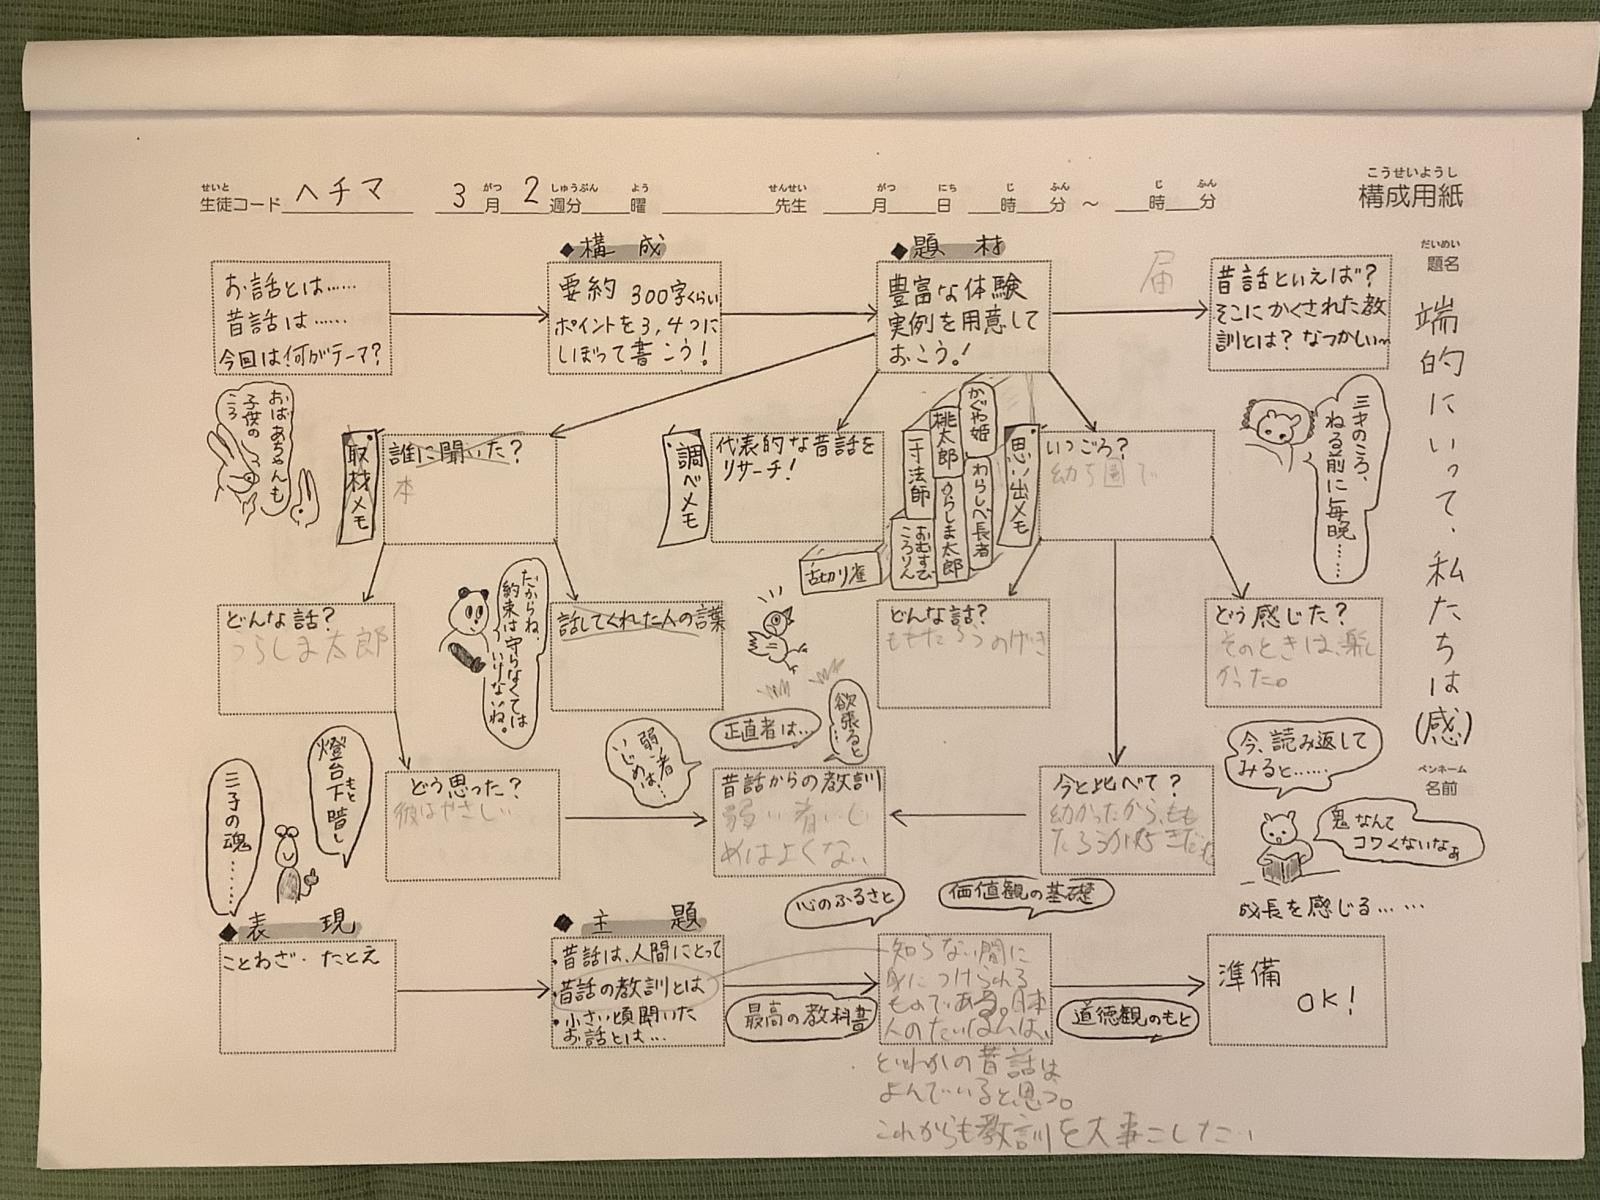 こうせいようし
構成用紙
せいと
生徒コード ヘチマ
がつ しゅうぶん よう
3月2週分 曜
せんせい
先生
がつ にち じ ふん じ ふん
月 日 時 分 〜 時 分
だいめい
題名
端的にいって、私たちは(感)
ペンネーム
名前
お話とは……
昔話は……
今回は何がテーマ?
◆構 成
要約 300字くらい
ポイントを3,4つに
しぼって書こう!
◆題 材
豊富な体験
実例を用意して
おこう!
届
昔話といえば?
そこにかくされた教
訓とは? なつかしい〜
おばあちゃんも
子供の
ころ
取材メモ
誰に聞いた?
本
調べメモ
代表的な昔話を
リサーチ!
かぐや姫
桃太郎
一寸法師
わらしべ長者
うらしま太郎
おむすび
ころりん
舌切り雀
思い出メモ
いつごろ?
幼ち園で
三才のころ、
ねる前に毎晩……
どんな話?
うらしま太郎
だからね、
約束は守らなくては
いけないね。
話してくれた人の言葉
どんな話?
ももたろうのげき
どう感じた?
そのときは、楽し
かった。
燈台下暗し
もと
三子の魂……
どう思った?
彼はやさしい
弱い者
いじめは…
正直者は…
欲張ると…
昔話からの教訓
弱い者いじ
めはよくない
今と比べて?
幼かったから、もも
たろうが好きだ
今、読み返して
みると……
鬼なんて
コワくないなぁ
成長を感じる……
心のふるさと
価値観の基礎
◆表 現
ことわざ・たとえ
◆主 題
・昔話は、人間にとって
・昔話の教訓とは
・小さい頃聞いた
お話とは…
最高の教科書
知らない間に
身につけられる
ものである。日本
人のたいはんは、
どれかの昔話は
よんでいると思う。
これからも教訓を大事にしたい
道徳観のもと
準備
OK!